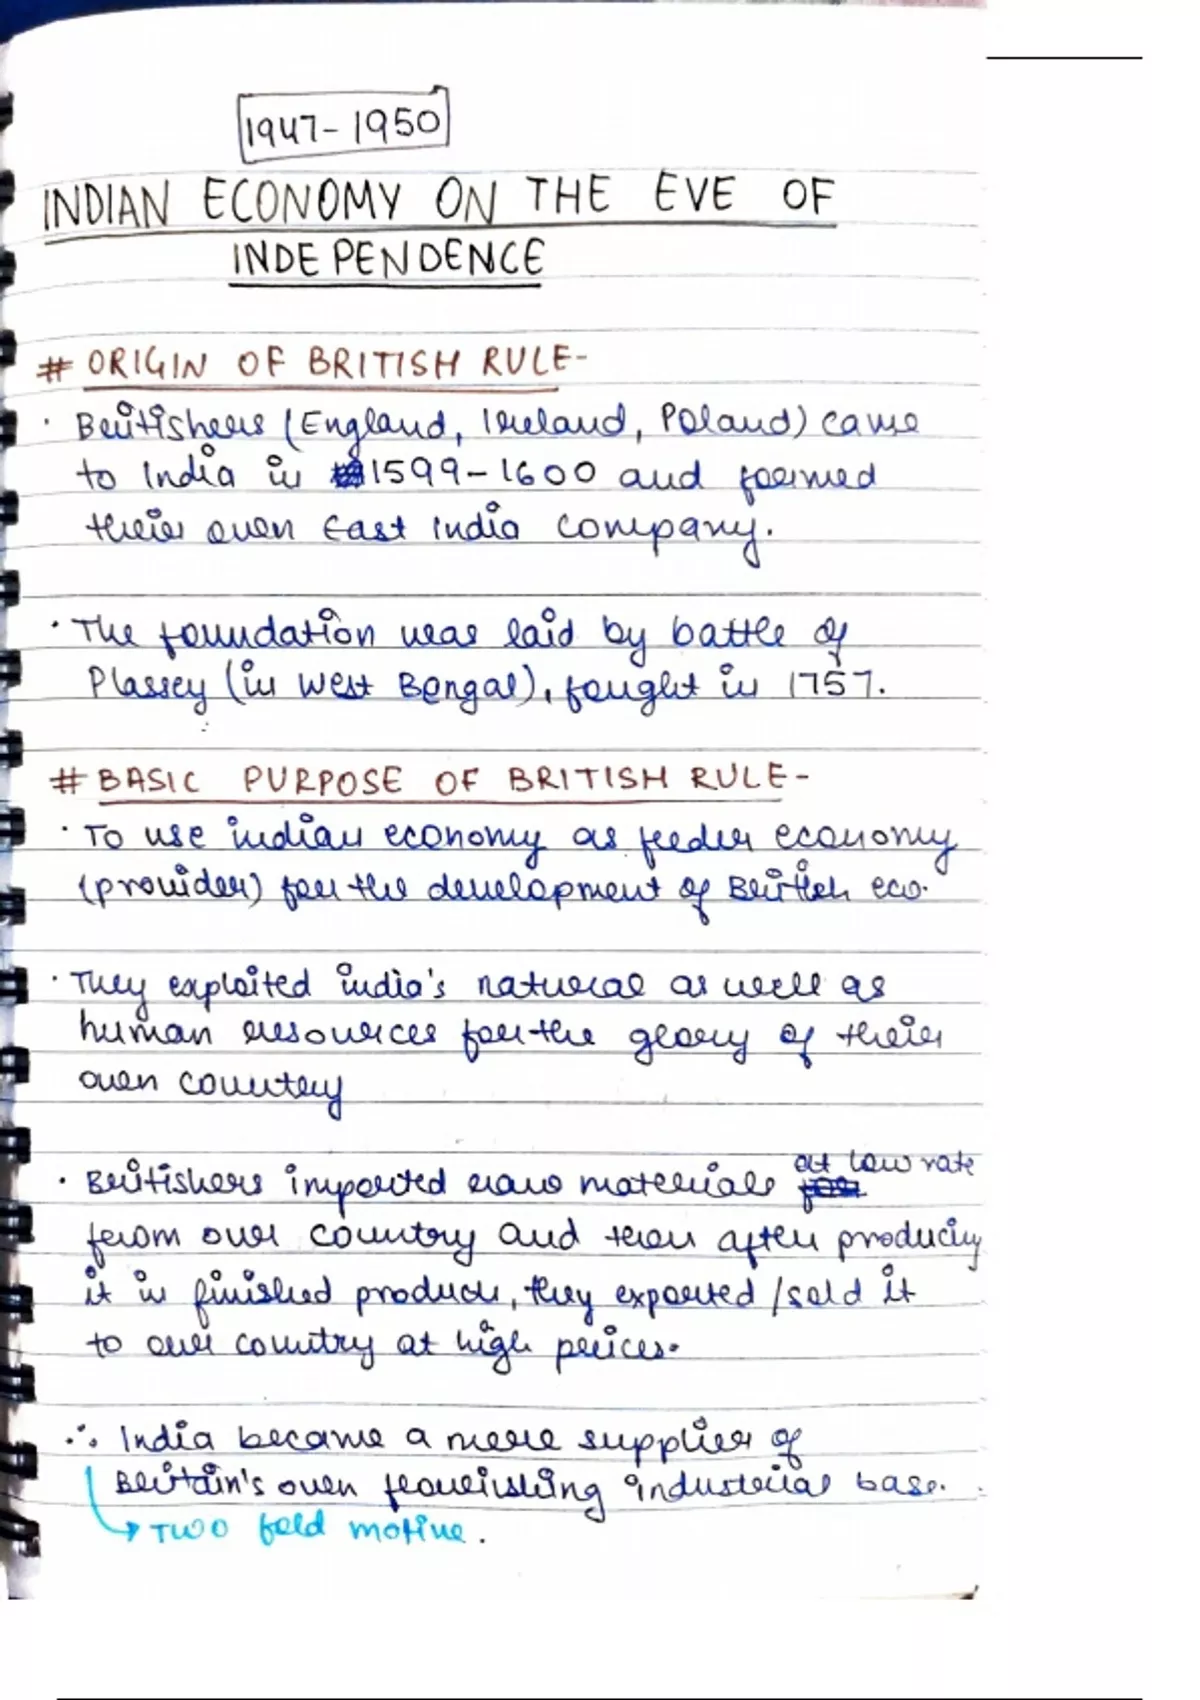 1947-1950
INDIAN ECONOMY ON THE EVE OF
INDEPENDENCE
# ORIGIN OF BRITISH RULE-
· Britishers (England, Ireland, Poland) came
to India in 1599-1600 and formed
their own East India Company.
· The foundation was laid by battle of
Plassey (in West Bengal), fought in 1757.
# BASIC PURPOSE OF BRITISH RULE-
· To use indian economy as feeder economy
(provider) for the development of British eco.
· They exploited india's natural as well as
human resources for the glory of their
own country
· Britishers imported raw materials at low rate
from our country and then after producing
it in finished products, they exported/sold it
to our country at high prices.
∴ India became a mere supplier of
Britain's own flourishing industrial base.
→ Two fold motive.